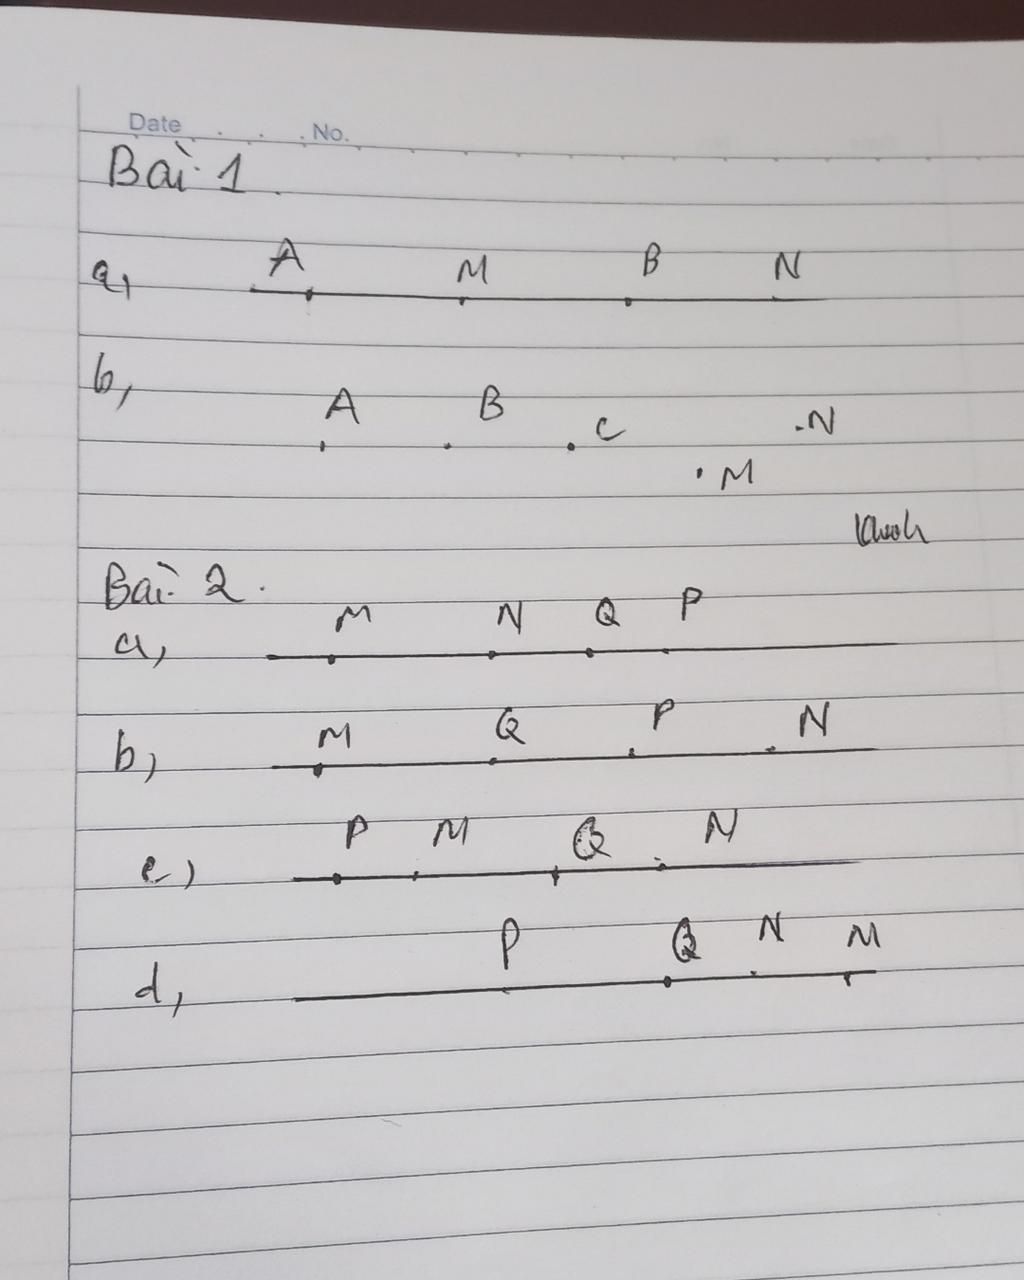 Date No.
Bài 1
a, A M B N
b, A B C N
M
Bài 2.
a, M N Q P
b, M Q P N
c) P M Q N
d, P Q N M